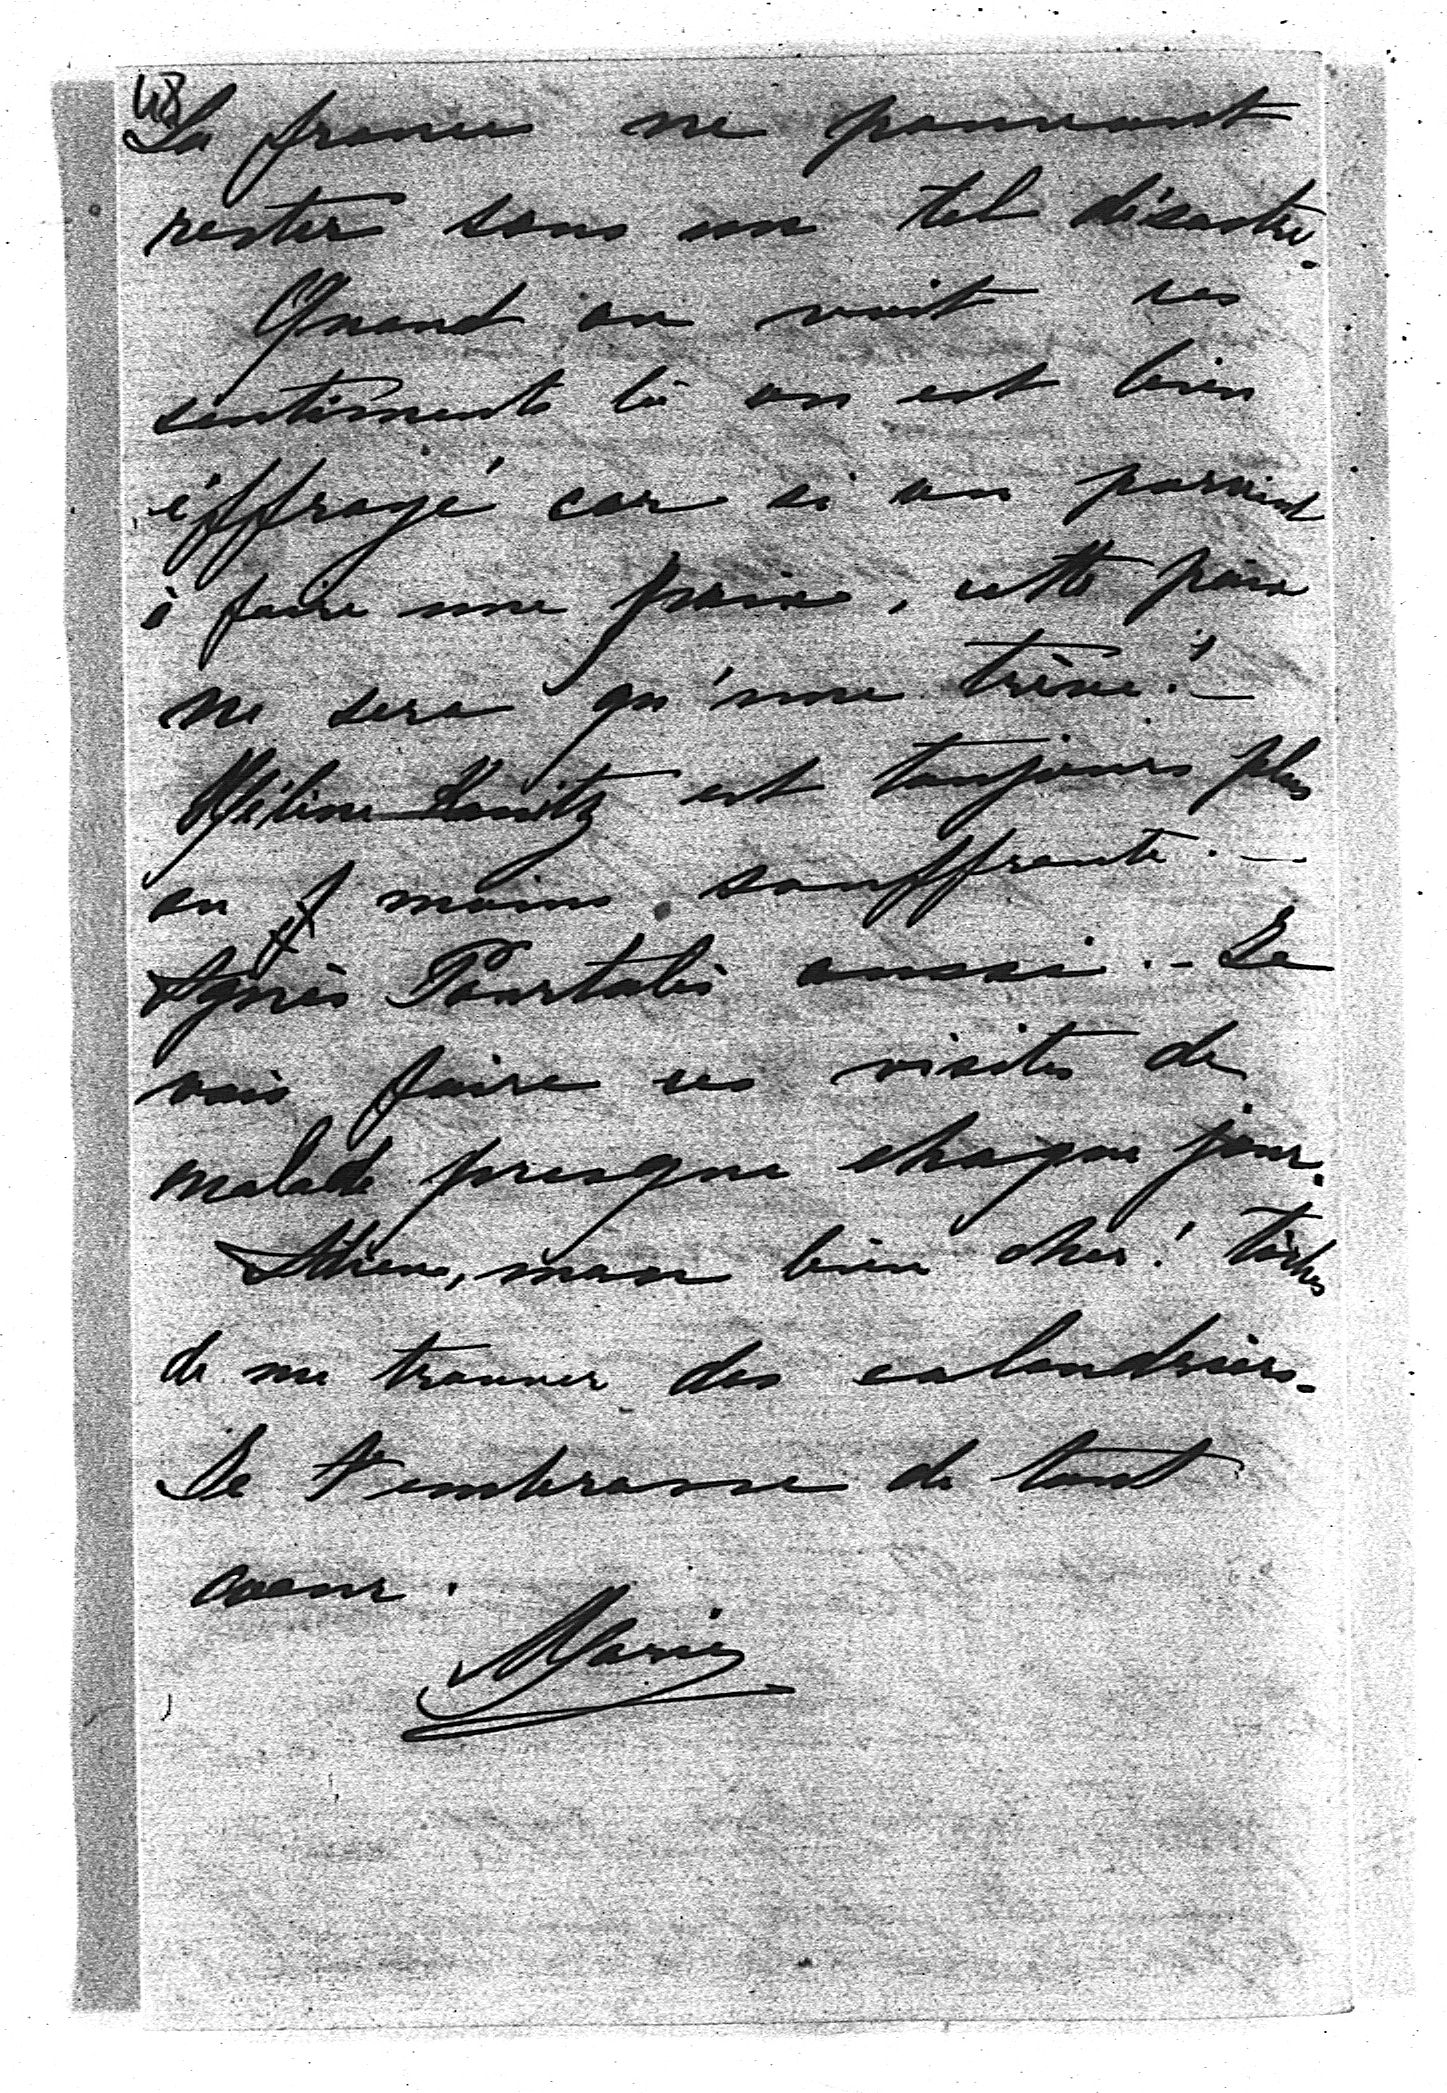 48
La france ne pouvant
rester sous un tel désastre.
Quand on voit ces
sentiments là on est bien
éffrayé car si on parvient
à faire une paix, cette paix
ne sera qu'une trève! –
Hélène Kanitz est toujours plus
ou moins souffrante. –
Agnès Pourtalès aussi. – Je
vais faire ces visites de
malade presque chaque jour.
Adieu, mon bien cher! tâches
de me trouver des calendriers.
Je t'embrasse de tout
coeur.
Marie